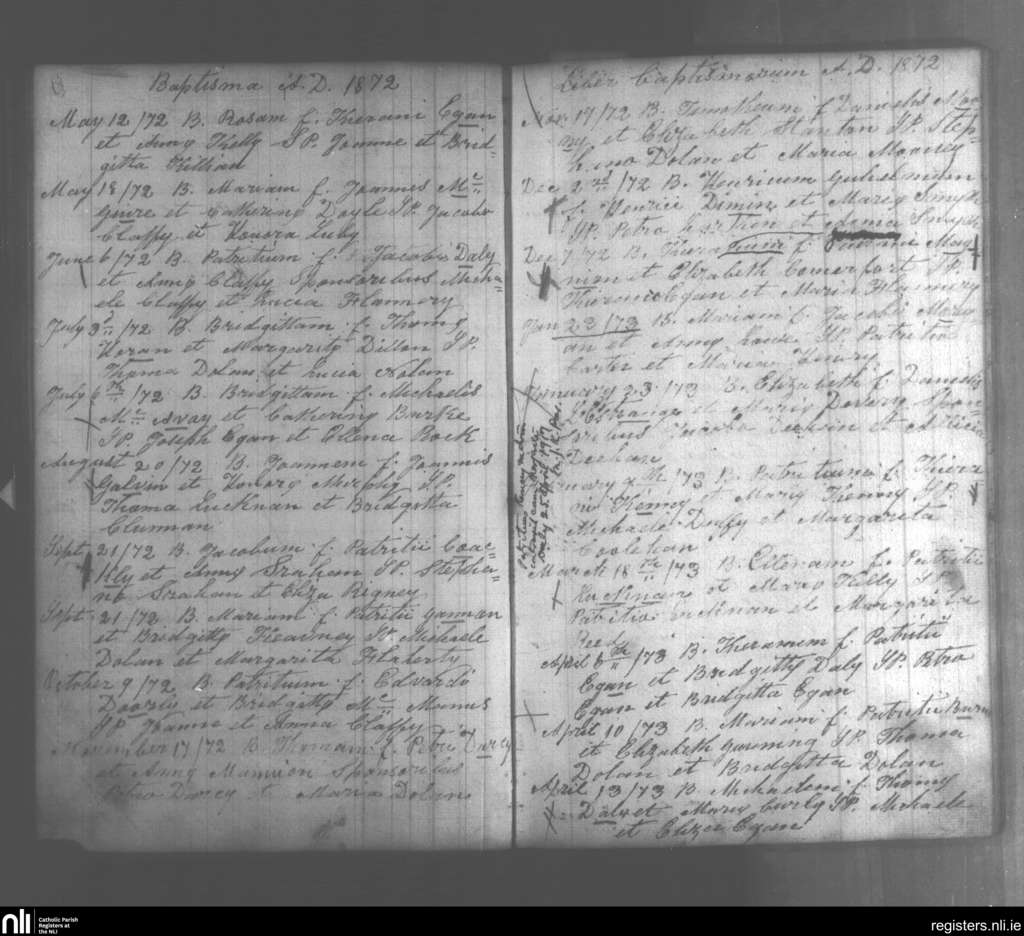 Baptisma A.D. 1872
May 12/72 B. Rosam f. Kierani Egan
et Anny Kelly SP. Joanne et Brid-
gitta Killian
May 18/72 B. Mariam f. Joannes Mc
Guire et Catherine Doyle SP. Jacobo
Claffy et Honora Luby
June 6/72 B. Patritium f. Jacobi Daly
et Anny Claffy Sponsoribus Micha-
ele Claffy et Lucia Flannery
July 3/72 B. Bridgittam f. Thomy
Horan et Margarity Dillon SP.
Thoma Dolan et Lucia Nolan
July 6th/72 B. Bridgittam f. Michaelis
Mc Avay et Catherine Burke
SP. Joseph Egan et Ellena Rock
August 20/72 B. Joannem f. Joannis
Galvin et Honory Murphy SP.
Thoma Lucknan et Bridgitta
Clunnan
Sept 21/72 B. Jacobum f. Patritii Coac-
kly et Anny Graham SP. Stepha-
no Graham et Eliza Rigney
Sept 21/72 B. Mariam f. Patritii Gannan
et Bridgitty Kearney SP. Michaele
Dolan et Margarita Flaherty
October 9/72 B. Patritium f. Edvardi
Doorly et Bridgitty Mc Manus
SP Joanne et Anna Claffy
November 17/72 B. Thomam f. Petri Darcy
et Anny Mannion Sponsoribus
Petro Darcy et Maria Dolan
Liber Baptismorum A.D. 1872
Nov. 17/72 B. Timotheum f. Danielis Moo-
ny et Elizabeth Stanton SP. Step-
hano Dolan et Maria Mooney
Dec 2nd/72 B. Henricum Gulielmum
f. Henrici Dimin et Mary Smyth
SP. Petro et Anna Smyth
Dec 7/72 B. f. May
et Elizabeth Comerfort SP.
Kierano Egan et Maria Flannery
Jan 23/73 B. Mariam f. Jacobi
an et Anny SP. Patritio
Carter et Maria Henry
January 23/73 B. Elizabeth f. Danielis
L'Estrange et Mary Devery Spon
soribus Jacobo Deehan et
Deehan
/73 B. Patritium f. Kiera
ni Kenny et Mary Kenny SP.
Michaele Duffy et Margarita
Coolehan
March 18th/73 B. Ellenam f. Patritii
et Mary Kelly SP.
Patritio et Margarita
April 6th/73 B. Kieranum f. Patritii
Egan et Bridgitty Daly SP. Petro
Egan et Bridgitta Egan
April 10/73 B. Mariam f. Patritii Burn
et Elizabeth Gunning SP. Thoma
Dolan et Bridgitta Dolan
April 13/73 B. Michaelem f. Thomy
Daly et Mary Curly SP. Michaele
et Eliza Egan
nli
Catholic Parish
Registers at
the NLI
registers.nli.ie